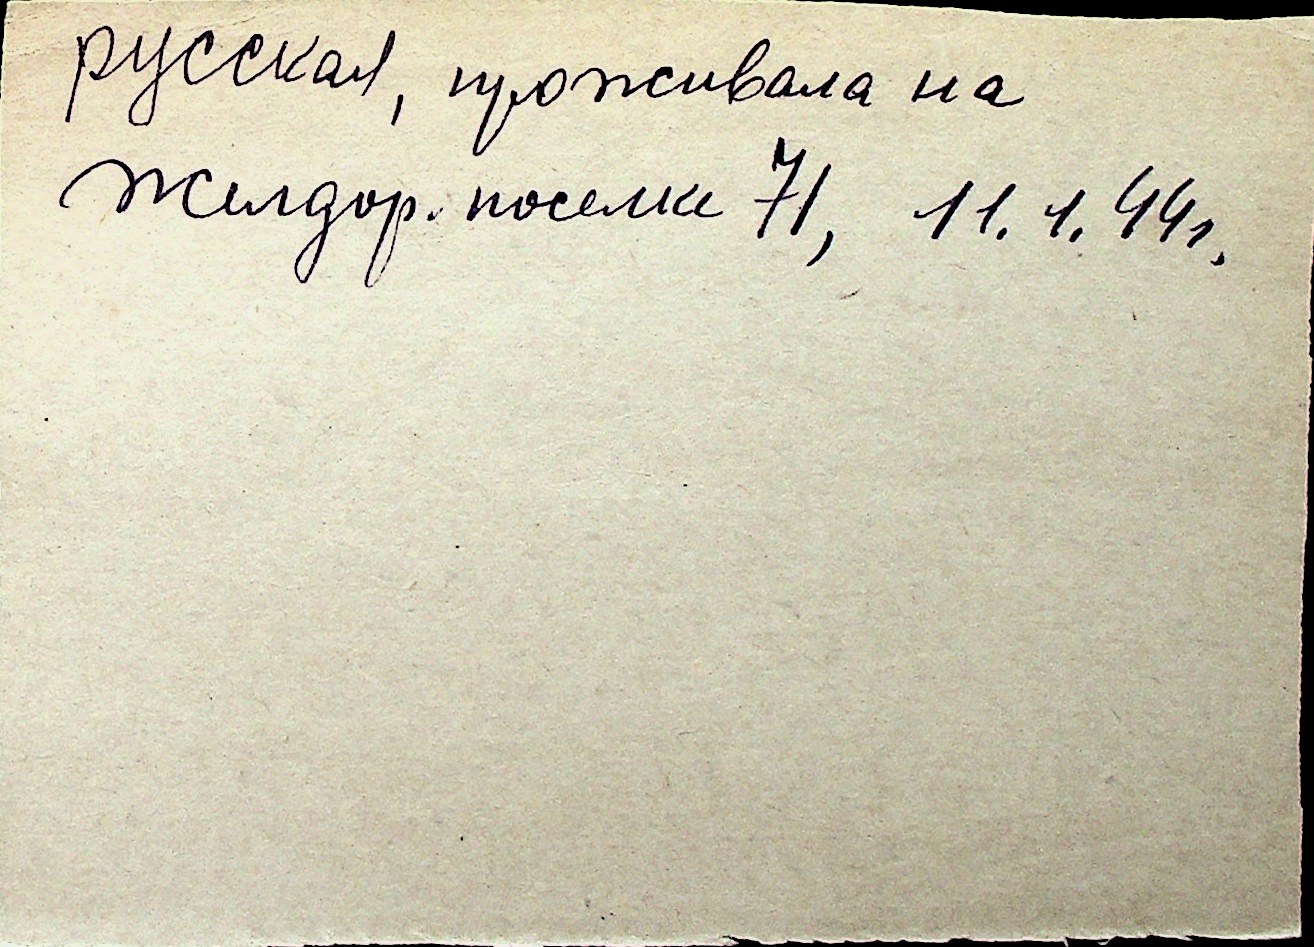 русская, проживала на
Желдор. поселке 71, 11.1.44г.